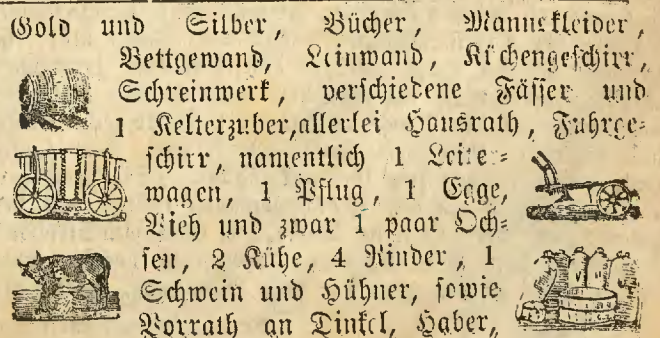 Gold und Silber, Bücher, Mannskleider,
Bettgewand, Leinwand, Küchengeschirr,
Schreinwerk, verschiedene Fässer und
1 Kelterzuber, allerlei Hausrath, Fuhrge-
schirr, namentlich 1 Leiter-
wagen, 1 Pflug, 1 Egge,
Vieh und zwar 1 paar Och-
sen, 2 Kühe, 4 Rinder, 1
Schwein und Hühner, sowie
Vorrath an Dinkel, Haber,